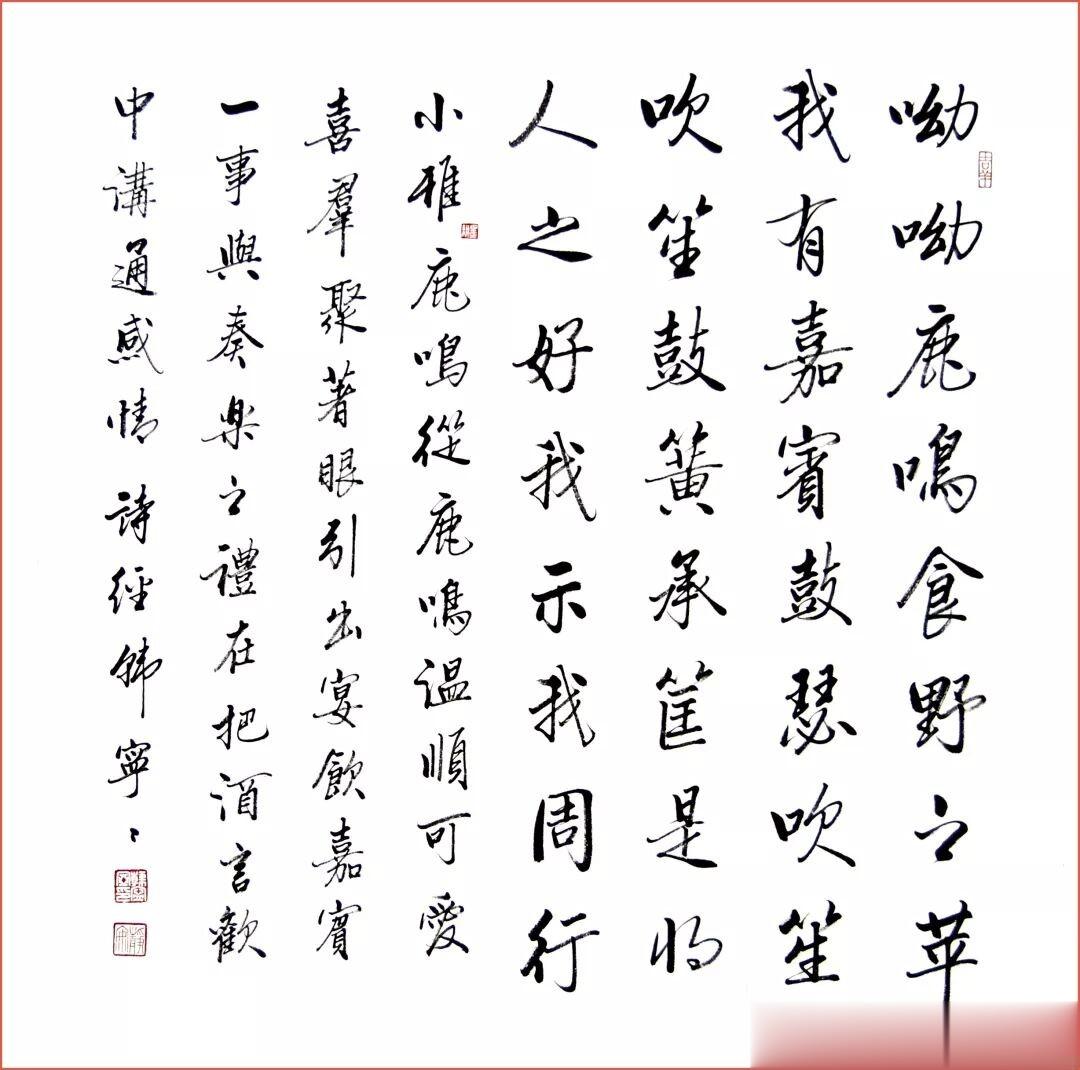 呦呦鹿鳴食野之苹
我有嘉賓鼓瑟吹笙
吹笙鼓簧承筐是将
人之好我示我周行
小雅鹿鳴從鹿鳴溫順可愛
喜羣聚著眼引出宴飲嘉賓
一事與奏樂之禮在把酒言歡
中講通感情詩經韩寧